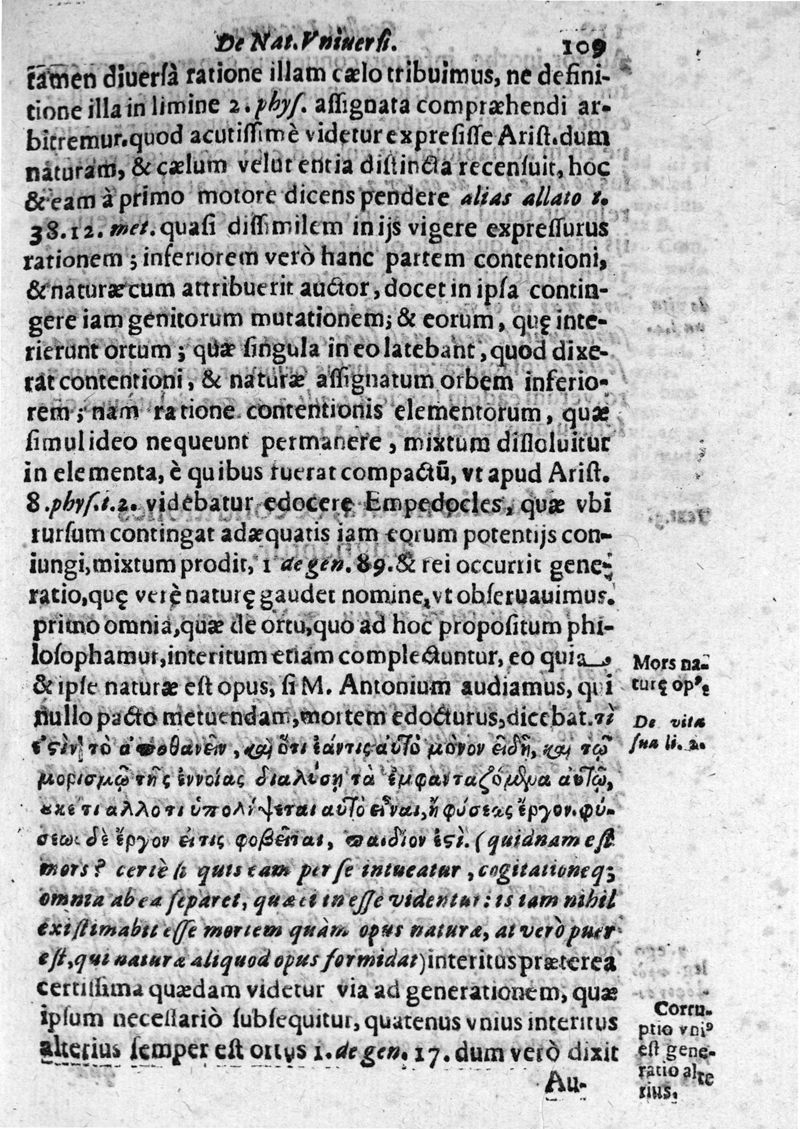 De Nat. Vniuersi. 109
tamen diuersâ ratione illam cælo tribuimus, ne defini-
tione illa in limine 2. phys. assignata compræhendi ar-
bitremur. quod acutissimè videtur expresisse Arist. dum
naturam, & cælum velut entia distincta recensuit, hoc
& eam à primo motore dicens pendere alias allato t.
38.12. met. quasi dissimilem in ijs vigere expressurus
rationem; inferiorem verò hanc partem contentioni,
& naturæ cum attribuerit auctor, docet in ipsa contin-
gere iam genitorum mutationem; & eorum, quę inte-
rierunt ortum; quæ singula in eo latebant, quod dixe-
rat contentioni, & naturæ assignatum orbem inferio-
rem; nam ratione contentionis elementorum, quæ
simul ideo nequeunt permanere, mixtum dissoluitur
in elementa, è quibus fuerat compactũ, vt apud Arist.
8. phys. t. 2. videbatur edocere Empedocles, quæ vbi
rursum contingat adæquatis iam eorum potentijs con-
iungi, mixtum prodit, 1 de gen. 89. & rei occurrit gene-
ratio, quę verè naturę gaudet nomine, vt obseruauimus.
primo omnia, quæ de ortu, quo ad hoc propositum phi-
losophamur, interitum etiam complectuntur, eo quia
& ipse naturæ est opus, si M. Antonium audiamus, qui
nullo pacto metuendam, mortem edocturus, dicebat. τί
ἐςὶν τὸ ἀποθανεῖν, καὶ ὅτι ἐάντις αὐτὸ μόνον εἴδῃ, καὶ τῷ
μορισμῷ τῆς ἐννοίας διαλύσῃ τὰ ἐμφανταζόμενα αὐτῷ,
ουκετι αλλο τι ὑπολήψεται αὐτὸ εἶναι, ἢ φύσεως ἔργον. φύ-
σεως δὲ ἔργον εἴτις φοβεῖται, παιδίον ἐςί. (quidnam est
mors? certè si quis eam per se intueatur, cogitationeq;
omnia ab ea separet, quæ ei inesse videntur: is iam nihil
existimabit esse mortem quàm opus naturæ, at verò puer
est, qui naturæ aliquod opus formidat) interitus præterea
certissima quædam videtur via ad generationem, quæ
ipsum necessariò subsequitur, quatenus vnius interitus
alterius semper est ortus 1. de gen. 17. dum verò dixit
Au-
Mors na-
turę opꝰ.
De vita
sua li. 2.
Corru-
ptio vniꝰ
est gene-
ratio alte
rius.